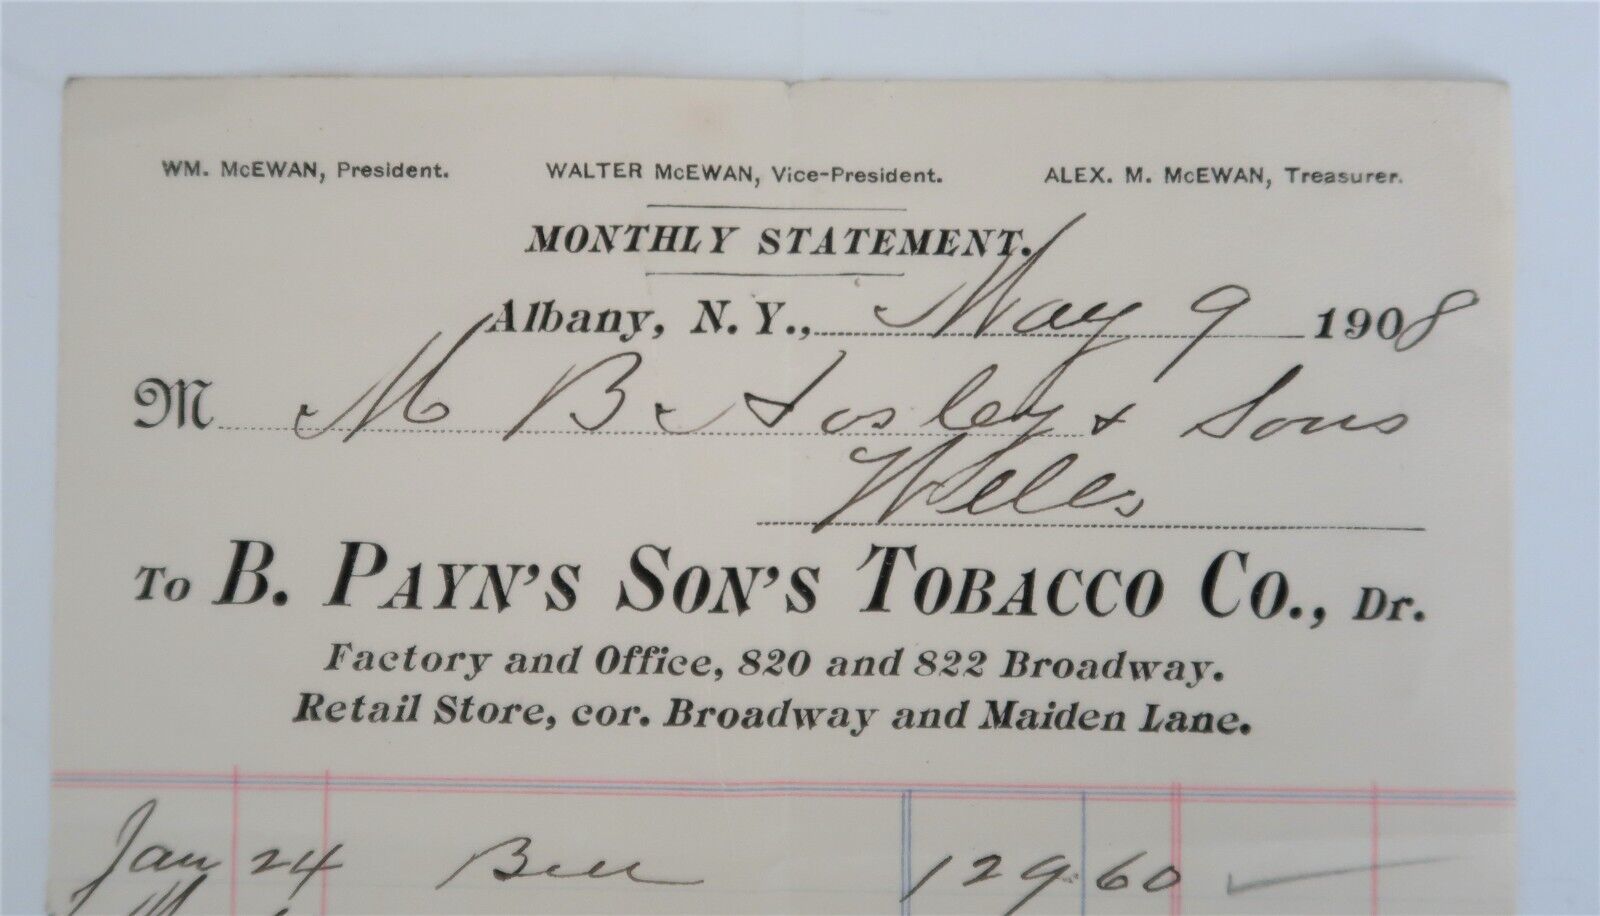 WM. McEWAN, President. WALTER McEWAN, Vice-President. ALEX. M. McEWAN, Treasurer.
MONTHLY STATEMENT.
Albany, N. Y., May 9 1908
M M B Hosley & Sons
Wells
To B. PAYN'S SON'S TOBACCO CO., Dr.
Factory and Office, 820 and 822 Broadway.
Retail Store, cor. Broadway and Maiden Lane.
Jan 24 Bill 129.60